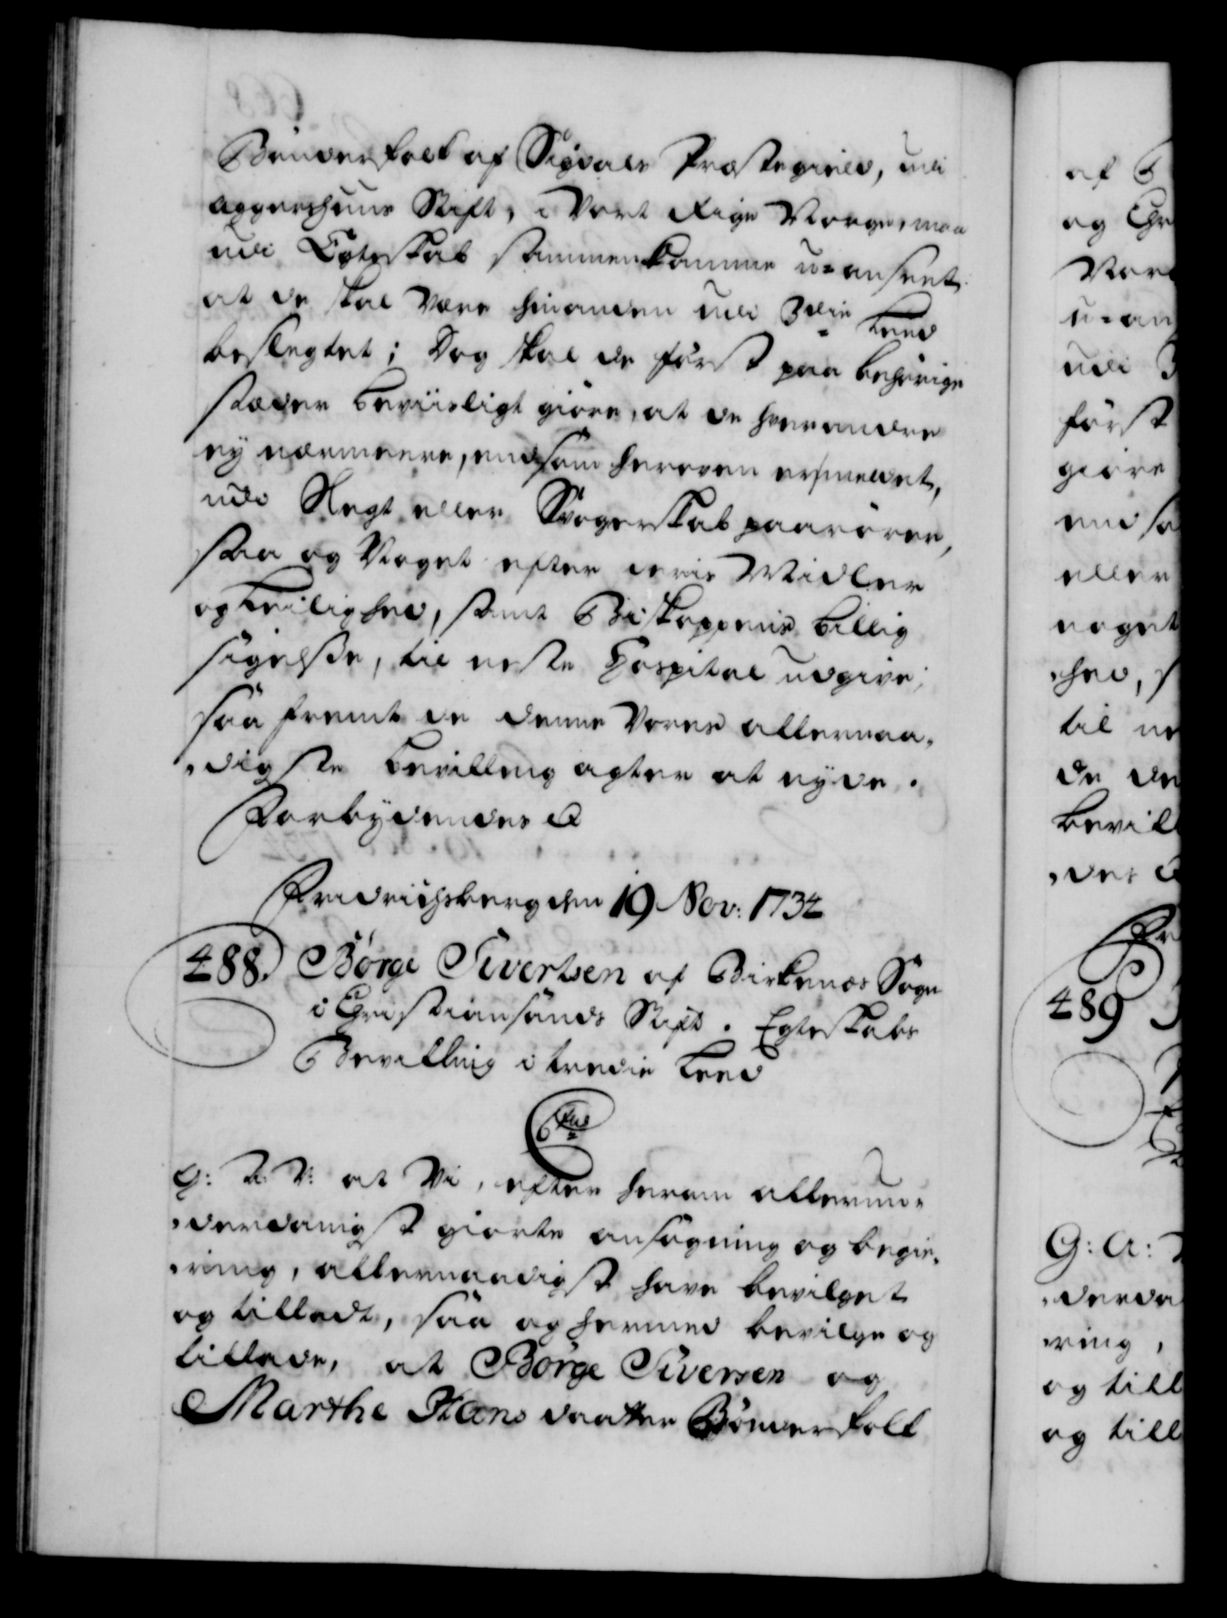 Bönderfolk af Sigdals Præstegield, udi
Aggershuus Stift, i Vort Rige Norge, maa
udi Egteskab sammenkomme u-anseet
at de skal være hinanden udi 3die Leed
beslegtet; Dog skal de först paa behörige
stæder beviisligt giöre, at de hverandre
ey nærmeere, end som heroven ermeldet,
udi Slegt eller Svogerskab paarörer,
saa og Noget efter deris Midler
og Leilighed, samt Biskoppens billig
sigelse, til neste Hospital udgive;
saa fremt de denne Vores allernaa-
digste bevilling agter at nyde.
Forbydendes &
Fridrichsberg den 19 Nov: 1734
488. Börge Sivertsen af Birkenæs Sogn
i Christiansands Stift. Egteskabs
Bevilling i tredie Leed
G: A: V: at Vi, efter herom allerun-
derdanigst giorte ansögning og begie-
ring, allernaadigst have bevilget
og tilladt, saa og hermed bevilge og
tillade, at Börge Siversen og
Marthe Hans daatter Bönderfolk
af B
og Chr
Nor
u-an
udi 3
först
giöre
end so
eller
noget
hed, s
til ne
de de
bevil
des &
Fr
489
G: A:
derda
ring,
og till
og till